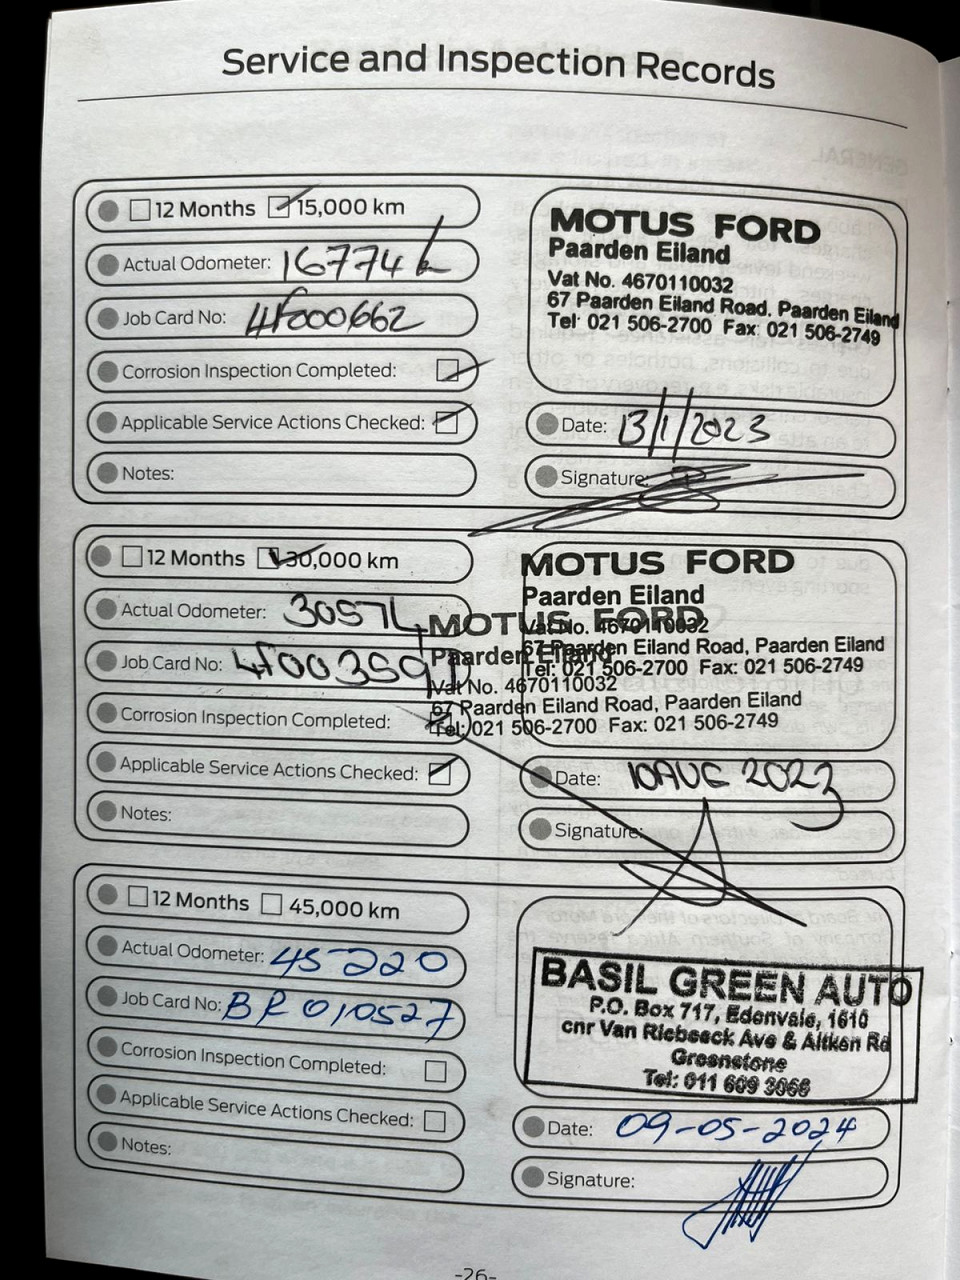 Service and Inspection Records
12 Months 15,000 km
Actual Odometer: 16774
Job Card No: 4F000662
Corrosion Inspection Completed:
Applicable Service Actions Checked:
Notes:
MOTUS FORD
Paarden Eiland
Vat No. 4670110032
67 Paarden Eiland Road, Paarden Eiland
Tel: 021 506-2700 Fax: 021 506-2749
Date: 13/1/2023
Signature:
12 Months 30,000 km
Actual Odometer: 30574
Job Card No: 4F00359
Corrosion Inspection Completed:
Applicable Service Actions Checked:
Notes:
MOTUS FORD
Paarden Eiland
Vat No. 4670110032
67 Paarden Eiland Road, Paarden Eiland
Tel: 021 506-2700 Fax: 021 506-2749
MOTUS FORD
Paarden Eiland
Vat No. 4670110032
67 Paarden Eiland Road, Paarden Eiland
Tel: 021 506-2700 Fax: 021 506-2749
Date: 10 AUG 2023
Signature:
12 Months 45,000 km
Actual Odometer: 45220
Job Card No: BR010527
Corrosion Inspection Completed:
Applicable Service Actions Checked:
Notes:
BASIL GREEN AUTO
P.O. Box 717, Edenvale, 1610
cnr Van Riebeeck Ave & Aitken Rd
Greenstone
Tel: 011 609 3066
Date: 09-05-2024
Signature:
-26-